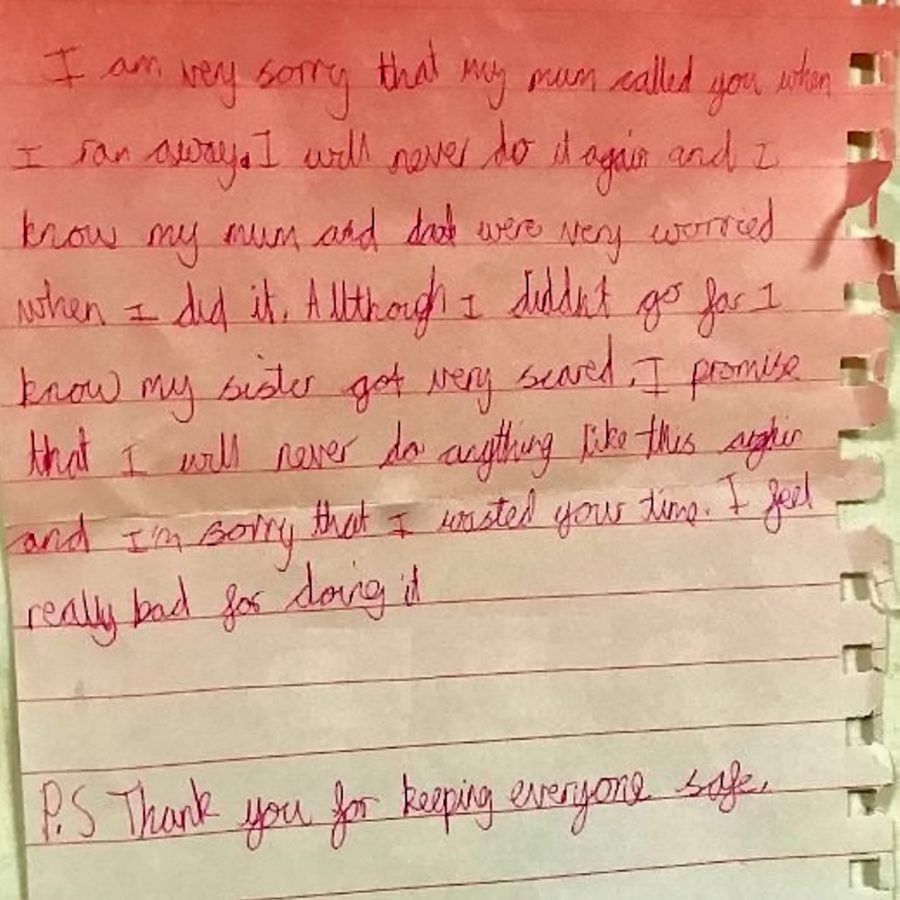 I am very sorry that my mum called you when
I ran away. I will never do it again and I
know my mum and dad were very worried
when I did it. Allthough I diddn't go far I
know my sister got very scared. I promise
that I will never do anything like this aghin
and I'm sorry that I wasted your time. I feel
really bad for doing it
P.S Thank you for keeping everyone safe.